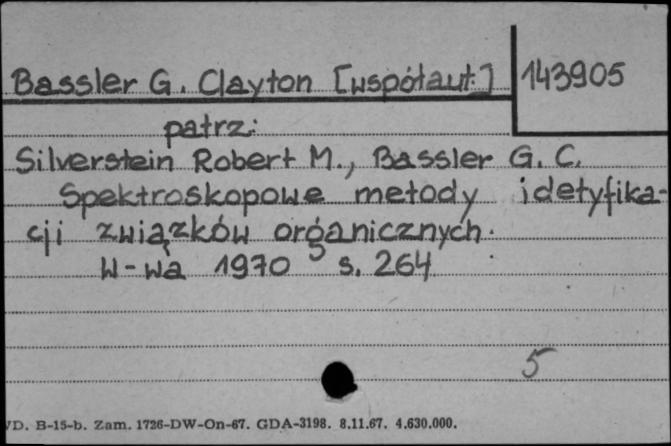 Bassler G. Clayton [współaut.] 143905
patrz:
Silverstein Robert M., Bassler G. C.
Spektroskopowe metody idetyfika-
cji związków organicznych.
W-wa 1970 s. 264
5
D. B-15-b. Zam. 1726-DW-On-67. GDA-3198. 8.11.67. 4.630.000.